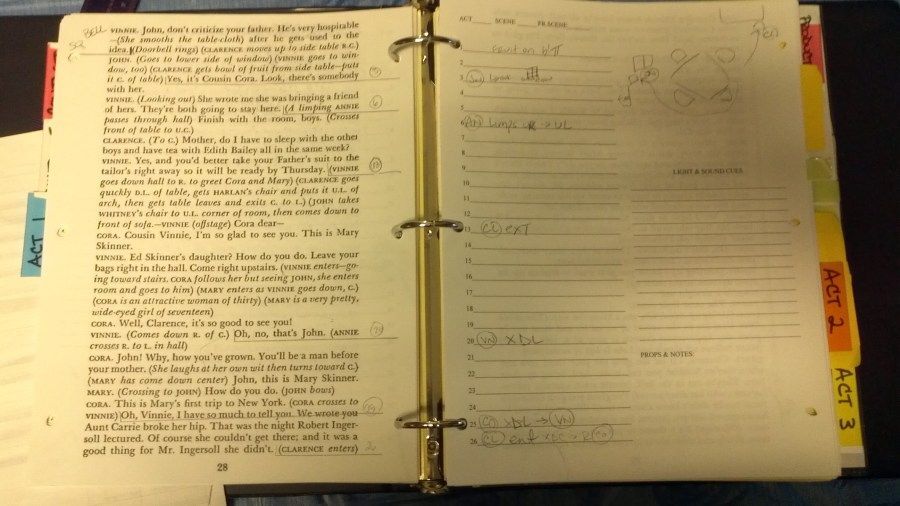 BELL
VINNIE. John, don't criticize your father. He's very hospitable
—(She smooths the table-cloth) after he gets used to the
idea. (Doorbell rings) (CLARENCE moves up to side table R.C.)
JOHN. (Goes to lower side of window) (VINNIE goes to win-
dow, too) (CLARENCE gets bowl of fruit from side table—puts
it C. of table) Yes, it's Cousin Cora. Look, there's somebody
with her.
VINNIE. (Looking out) She wrote me she was bringing a friend
of hers. They're both going to stay here. (A limping ANNIE
passes through hall) Finish with the room, boys. (Crosses
front of table to U.C.)
CLARENCE. (To C.) Mother, do I have to sleep with the other
boys and have tea with Edith Bailey all in the same week?
VINNIE. Yes, and you'd better take your Father's suit to the
tailor's right away so it will be ready by Thursday. (VINNIE
goes down hall to R. to greet Cora and Mary) (CLARENCE goes
quickly D.L. of table, gets HARLAN'S chair and puts it U.L. of
arch, then gets table leaves and exits C. to L.) (JOHN takes
WHITNEY'S chair to U.L. corner of room, then comes down to
front of sofa.—VINNIE (offstage) Cora dear—
CORA. Cousin Vinnie, I'm so glad to see you. This is Mary
Skinner.
VINNIE. Ed Skinner's daughter? How do you do. Leave your
bags right in the hall. Come right upstairs. (VINNIE enters—go-
ing toward stairs. CORA follows her but seeing JOHN, she enters
room and goes to him) (MARY enters as VINNIE goes down, C.)
(CORA is an attractive woman of thirty) (MARY is a very pretty,
wide-eyed girl of seventeen)
CORA. Well, Clarence, it's so good to see you!
VINNIE. (Comes down R. of C.) Oh, no, that's John. (ANNIE
crosses R. to L. in hall)
CORA. John! Why, how you've grown. You'll be a man before
your mother. (She laughs at her own wit then turns toward C.)
(MARY has come down center) John, this is Mary Skinner.
MARY. (Crossing to JOHN) How do you do. (JOHN bows)
CORA. This is Mary's first trip to New York. (CORA crosses to
VINNIE) Oh, Vinnie, I have so much to tell you. We wrote you
Aunt Carrie broke her hip. That was the night Robert Inger-
soll lectured. Of course she couldn't get there; and it was a
good thing for Mr. Ingersoll she didn't. (CLARENCE enters)
28
ACT 1
ACT SCENE FR SCENE
1
2
3
4
5
6 limps → UL
7
8
9
10
11
12
13 CL ext
14
15
16
17
18
19
20 VN XDL
21
22
23
24
25 CO XDL → VN
26 CL ent
LIGHT & SOUND CUES
PROPS & NOTES:
ACT 2
ACT 3